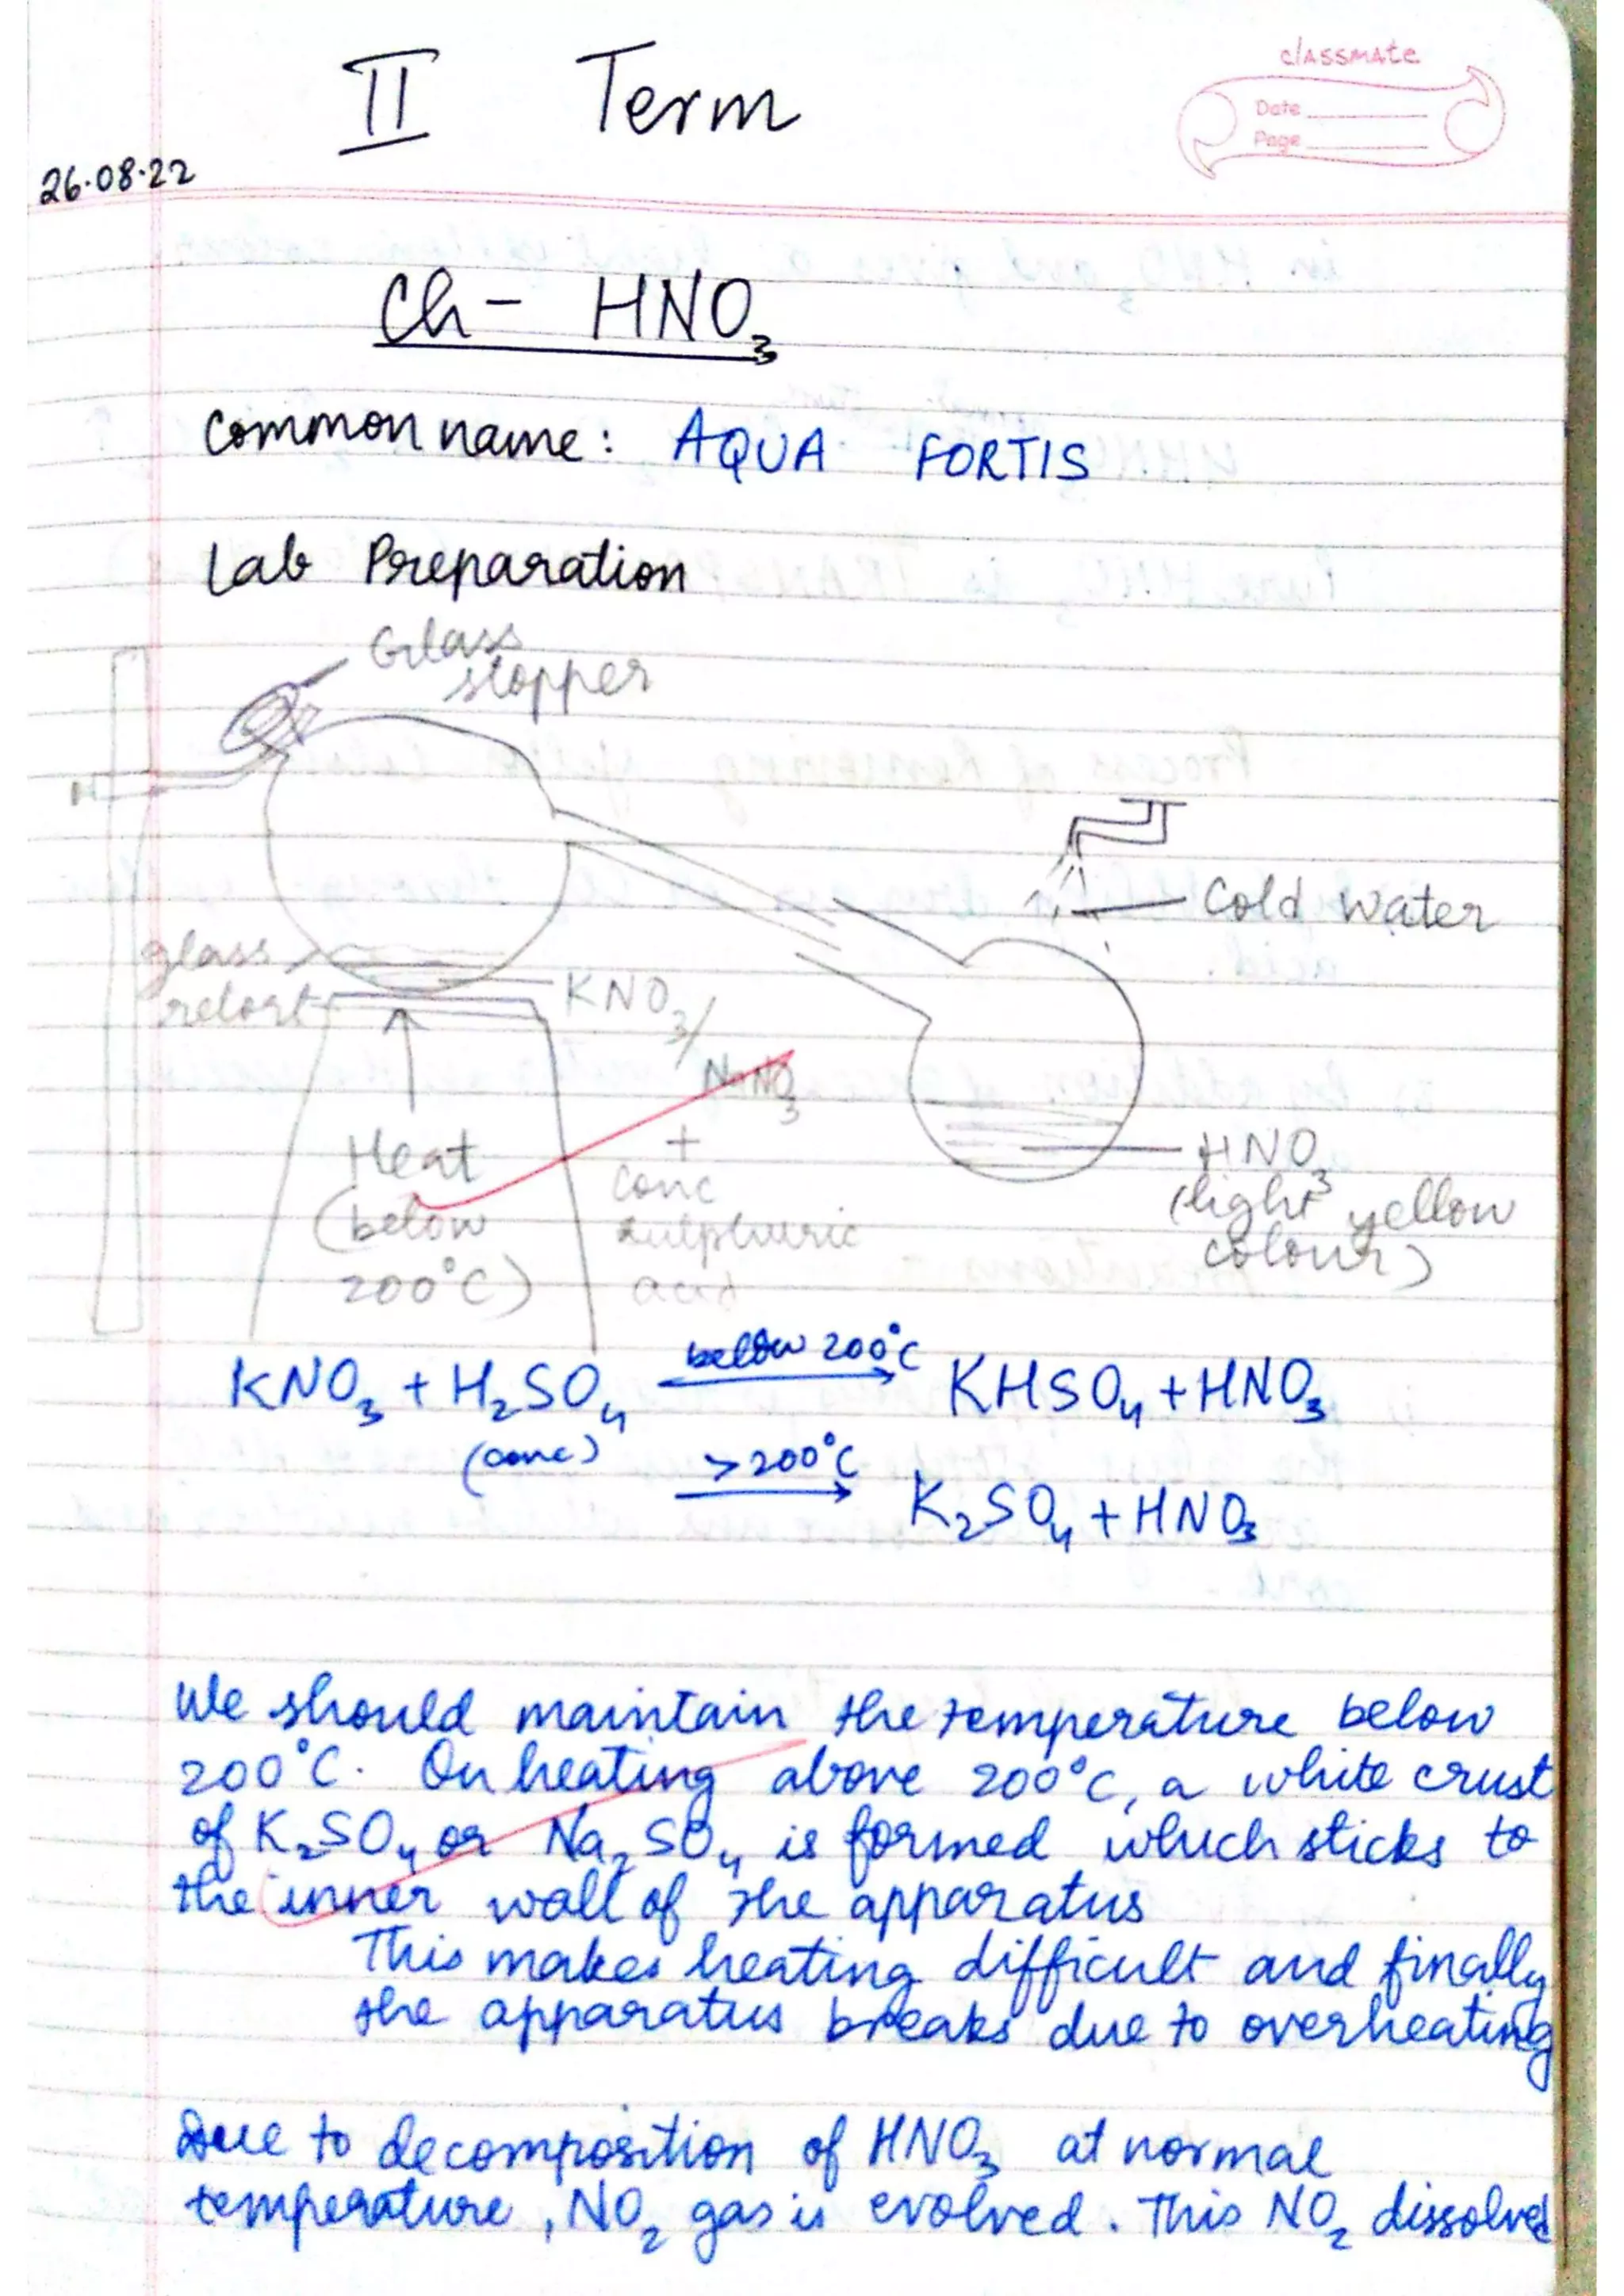 II Term
classmate
Date
Page
26.08.22
Ch - HNO₃
Common name : AQUA FORTIS
Lab Preparation
Glass
stopper
Cold water
glass
retort
KNO₃/
NaNO₃
+
conc
sulphuric
acid
Heat
(below
200°C)
HNO₃
(light yellow
colour)
KNO₃ + H₂SO₄ below 200°C → KHSO₄ + HNO₃
(conc)
>200°C → K₂SO₄ + HNO₃
We should maintain the temperature below
200°C. On heating above 200°C, a white crust
of K₂SO₄ or Na₂SO₄ is formed which sticks to
the inner wall of the apparatus
This makes heating difficult and finally
the apparatus breaks due to overheating
Due to decomposition of HNO₃ at normal
temperature, NO₂ gas is evolved. This NO₂ dissolved